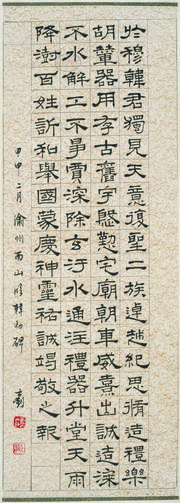 於穆韓君獨見天意復聖二族逴越紀思脩造禮樂
胡輦器用存古舊宇慇懃宅廟朝車威熹出誠造漆
不水解工不爭賈深除玄汙水通注禮器升堂天雨
降澍百姓訢和舉國蒙慶神靈祐誠竭敬之報
甲申二月渝州西山臨韓勑碑